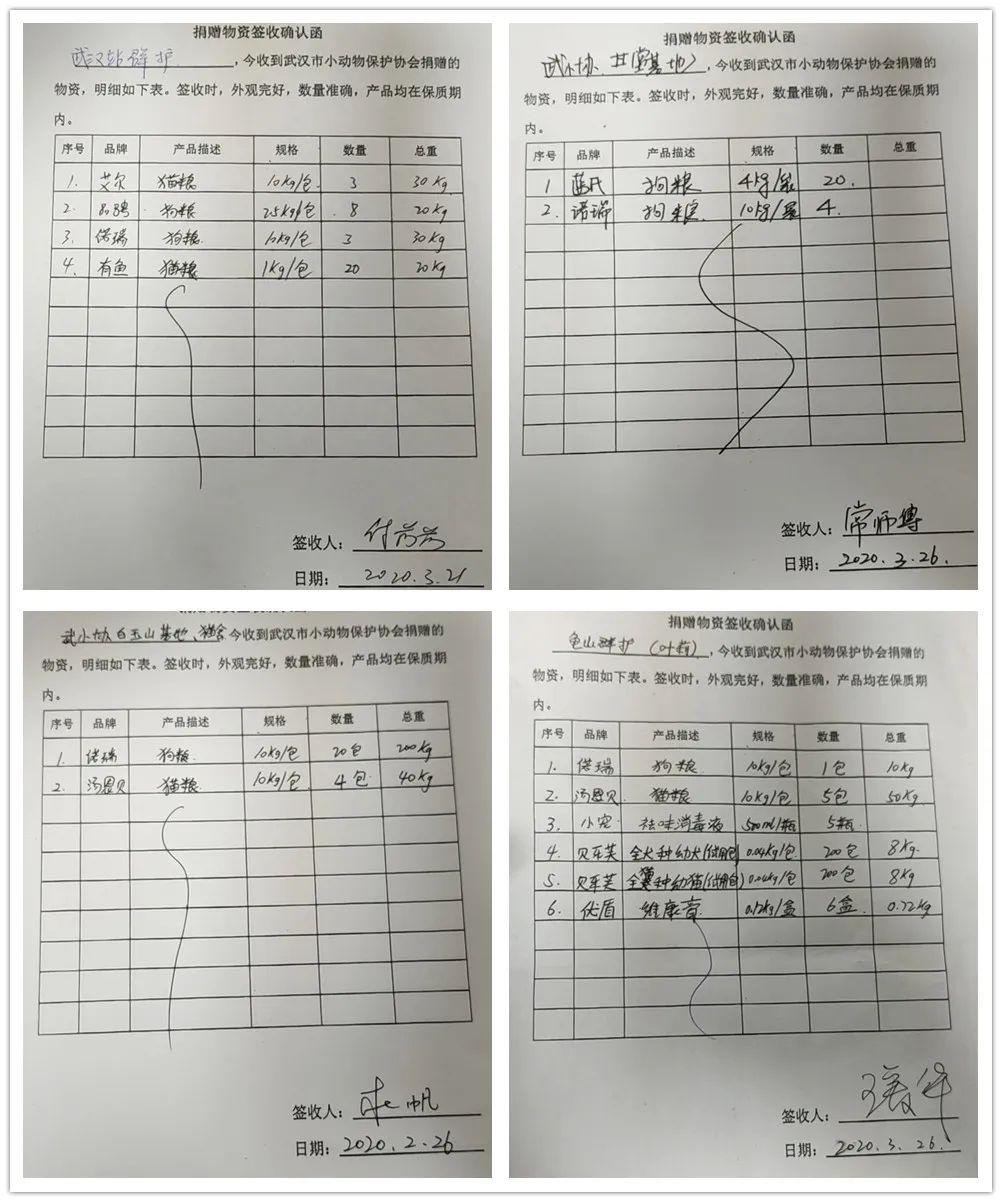 捐赠物资签收确认函
武汉站群护,今收到武汉市小动物保护协会捐赠的
物资,明细如下表。签收时,外观完好,数量准确,产品均在保质期
内。
序号 品牌 产品描述 规格 数量 总重
1. 艾尔 猫粮 10Kg/包 3 30Kg
2. 狗粮 2.5Kg/包 8 20Kg
3. 偌瑞 狗粮 10Kg/包 3 30Kg
4. 有鱼 猫粮 1Kg/包 20 20Kg
签收人:
日期: 2020.3.21
捐赠物资签收确认函
武小协 基地,今收到武汉市小动物保护协会捐赠的
物资,明细如下表。签收时,外观完好,数量准确,产品均在保质期
内。
序号 品牌 产品描述 规格 数量 总重
1 蓝氏 狗粮 4kg/ 20.
2. 诺瑞 狗粮 10kg/ 4.
签收人: 常师傅
日期: 2020.3.26.
捐赠物资签收确认函
武小协白玉山基地、猫舍今收到武汉市小动物保护协会捐赠的
物资,明细如下表。签收时,外观完好,数量准确,产品均在保质期
内。
序号 品牌 产品描述 规格 数量 总重
1. 偌瑞 狗粮 10Kg/包 20包 200Kg
2. 汤恩贝 猫粮 10Kg/包 4包 40Kg
签收人:
日期: 2020.2.26
捐赠物资签收确认函
龟山群护(叶莉),今收到武汉市小动物保护协会捐赠的
物资,明细如下表。签收时,外观完好,数量准确,产品均在保质期
内。
序号 品牌 产品描述 规格 数量 总重
1. 偌瑞 狗粮 10Kg/包 1包 10Kg
2. 汤恩贝 猫粮 10Kg/包 5包 50Kg
3. 小宠 祛味消毒液 500ml/瓶 5瓶
4. 贝乐芙 全犬种幼犬(试用包) 0.04Kg/包 200包 8Kg
5. 贝乐芙 全猫种幼猫(试用包) 0.04Kg/包 200包 8Kg
6. 优盾 维康膏 0.12Kg/盒 6盒 0.72Kg
签收人:
日期: 2020.3.26.